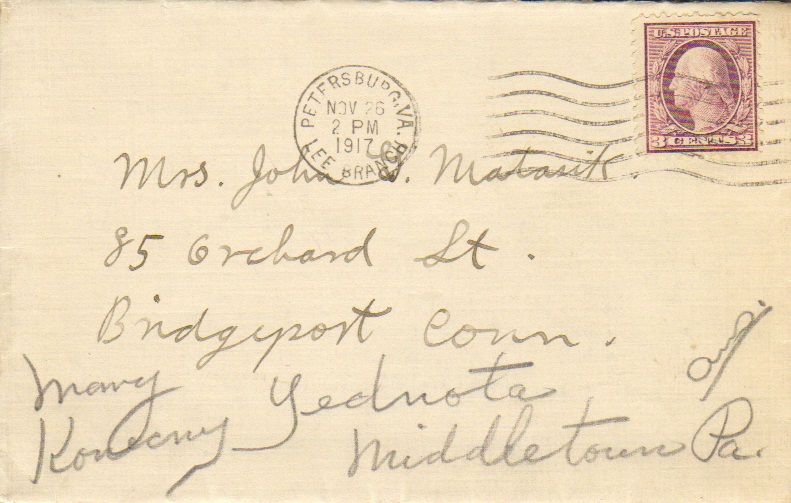 U.S. POSTAGE
3 CENTS 3
PETERSBURG, VA.
NOV 26
2 PM
1917
LEE BRANCH
Mrs. John J. Matasik.
85 Orchard St.
Bridgeport Conn.
Mary Jednota
Konecny Middletown Pa.